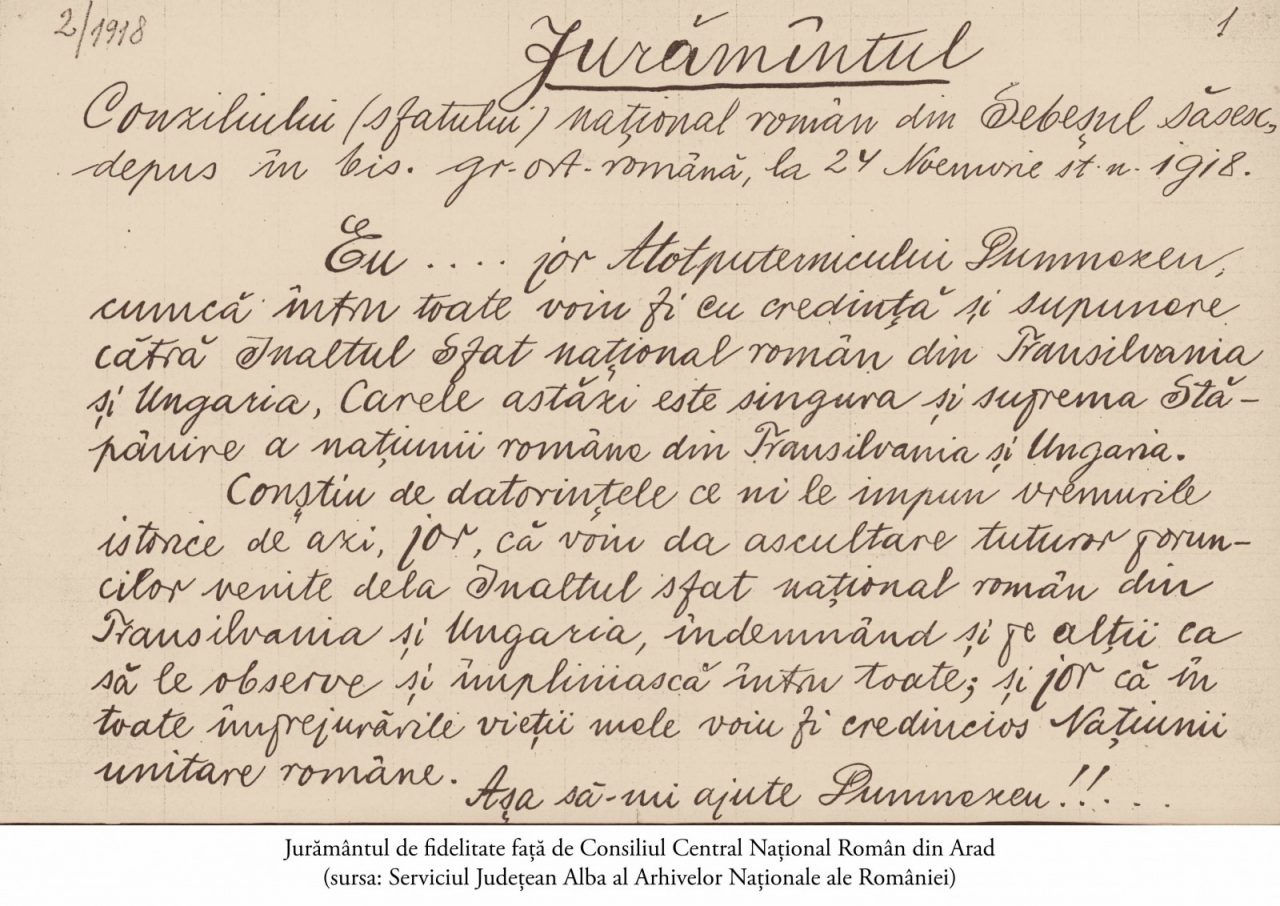 2/1918
1
Jurămîntul
Conziliului (sfatului) național român din Sebeșul săsesc,
depus în bis. gr.-ort.-română, la 24 Noemvrie st. n. 1918.
Eu .... jor Atotputernicului Dumnezeu,
cumcă întru toate voiu fi cu credință și supunere
cătră Inaltul Sfat național român din Transilvania
și Ungaria, Carele astăzi este singura și suprema Stă-
pânire a națiunii române din Transilvania și Ungaria.
Conștiu de datorințele ce ni le impun vremurile
istorice de azi, jor, că voiu da ascultare tuturor porun-
cilor venite dela Inaltul sfat național român din
Transilvania și Ungaria, îndemnând și pe alții ca
să le observe și împliniască întru toate; și jor că în
toate împrejurările vieții mele voiu fi credincios Națiunii
unitare române.
Așa să-mi ajute Dumnezeu!!...
Jurământul de fidelitate față de Consiliul Central Național Român din Arad
(sursa: Serviciul Județean Alba al Arhivelor Naționale ale României)